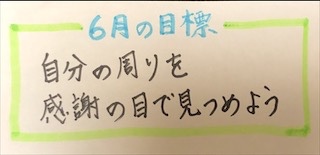 6月の目標
自分の周りを
感謝の目で見つめよう